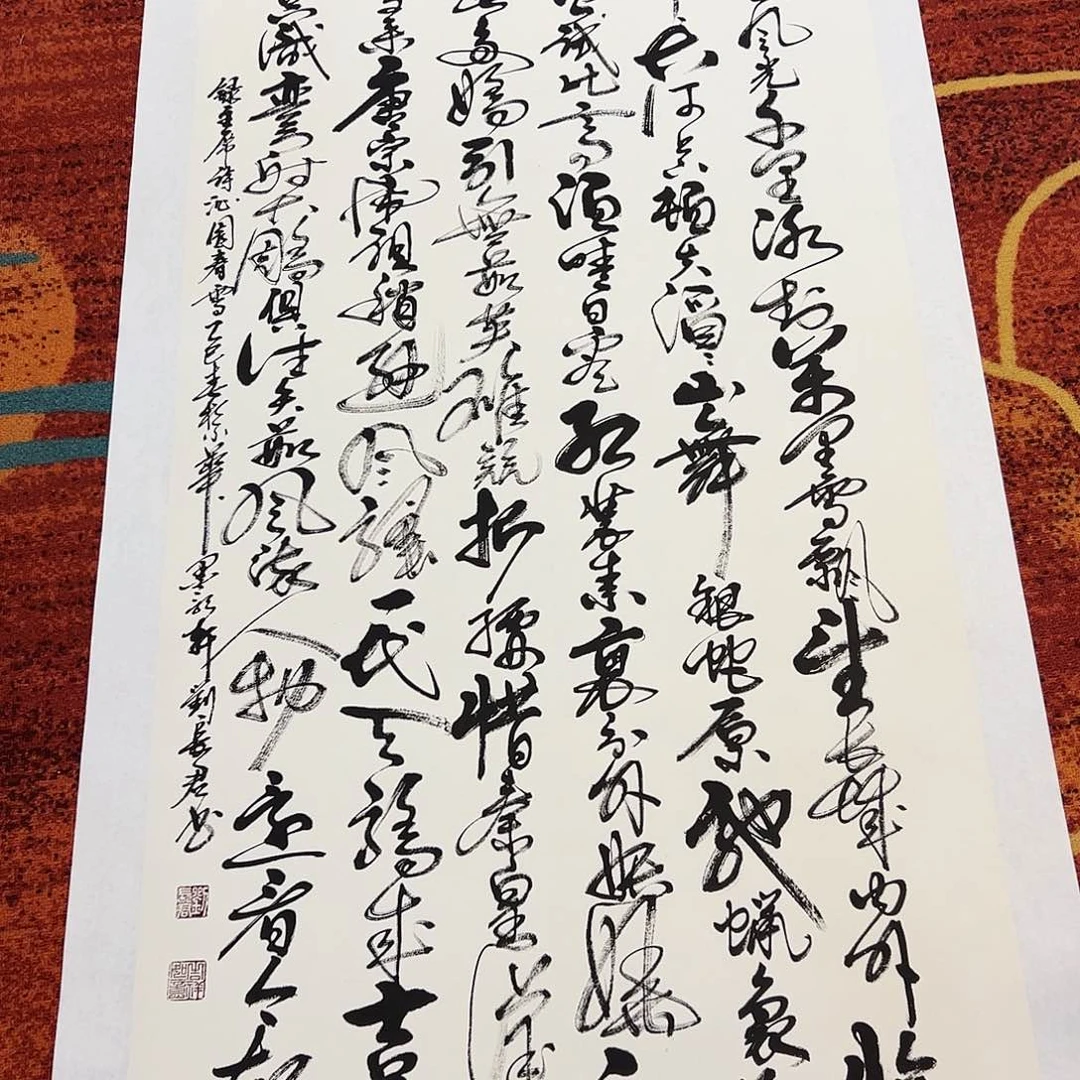 风光千里冰封萬里雪飄望長城内外惟
大河上下頓失滔滔山舞銀蛇原馳蠟象
試比高須晴日看紅裝素裹分外妖嬈
此多嬌引無數英雄競折腰惜秦皇漢武
唐宗宋祖稍遜風騷一代天驕成吉
識彎弓射大鵰俱往矣數風流人物還看今朝
錄主席詩沁園春雪乙巳春於京華墨 軒劉長君书